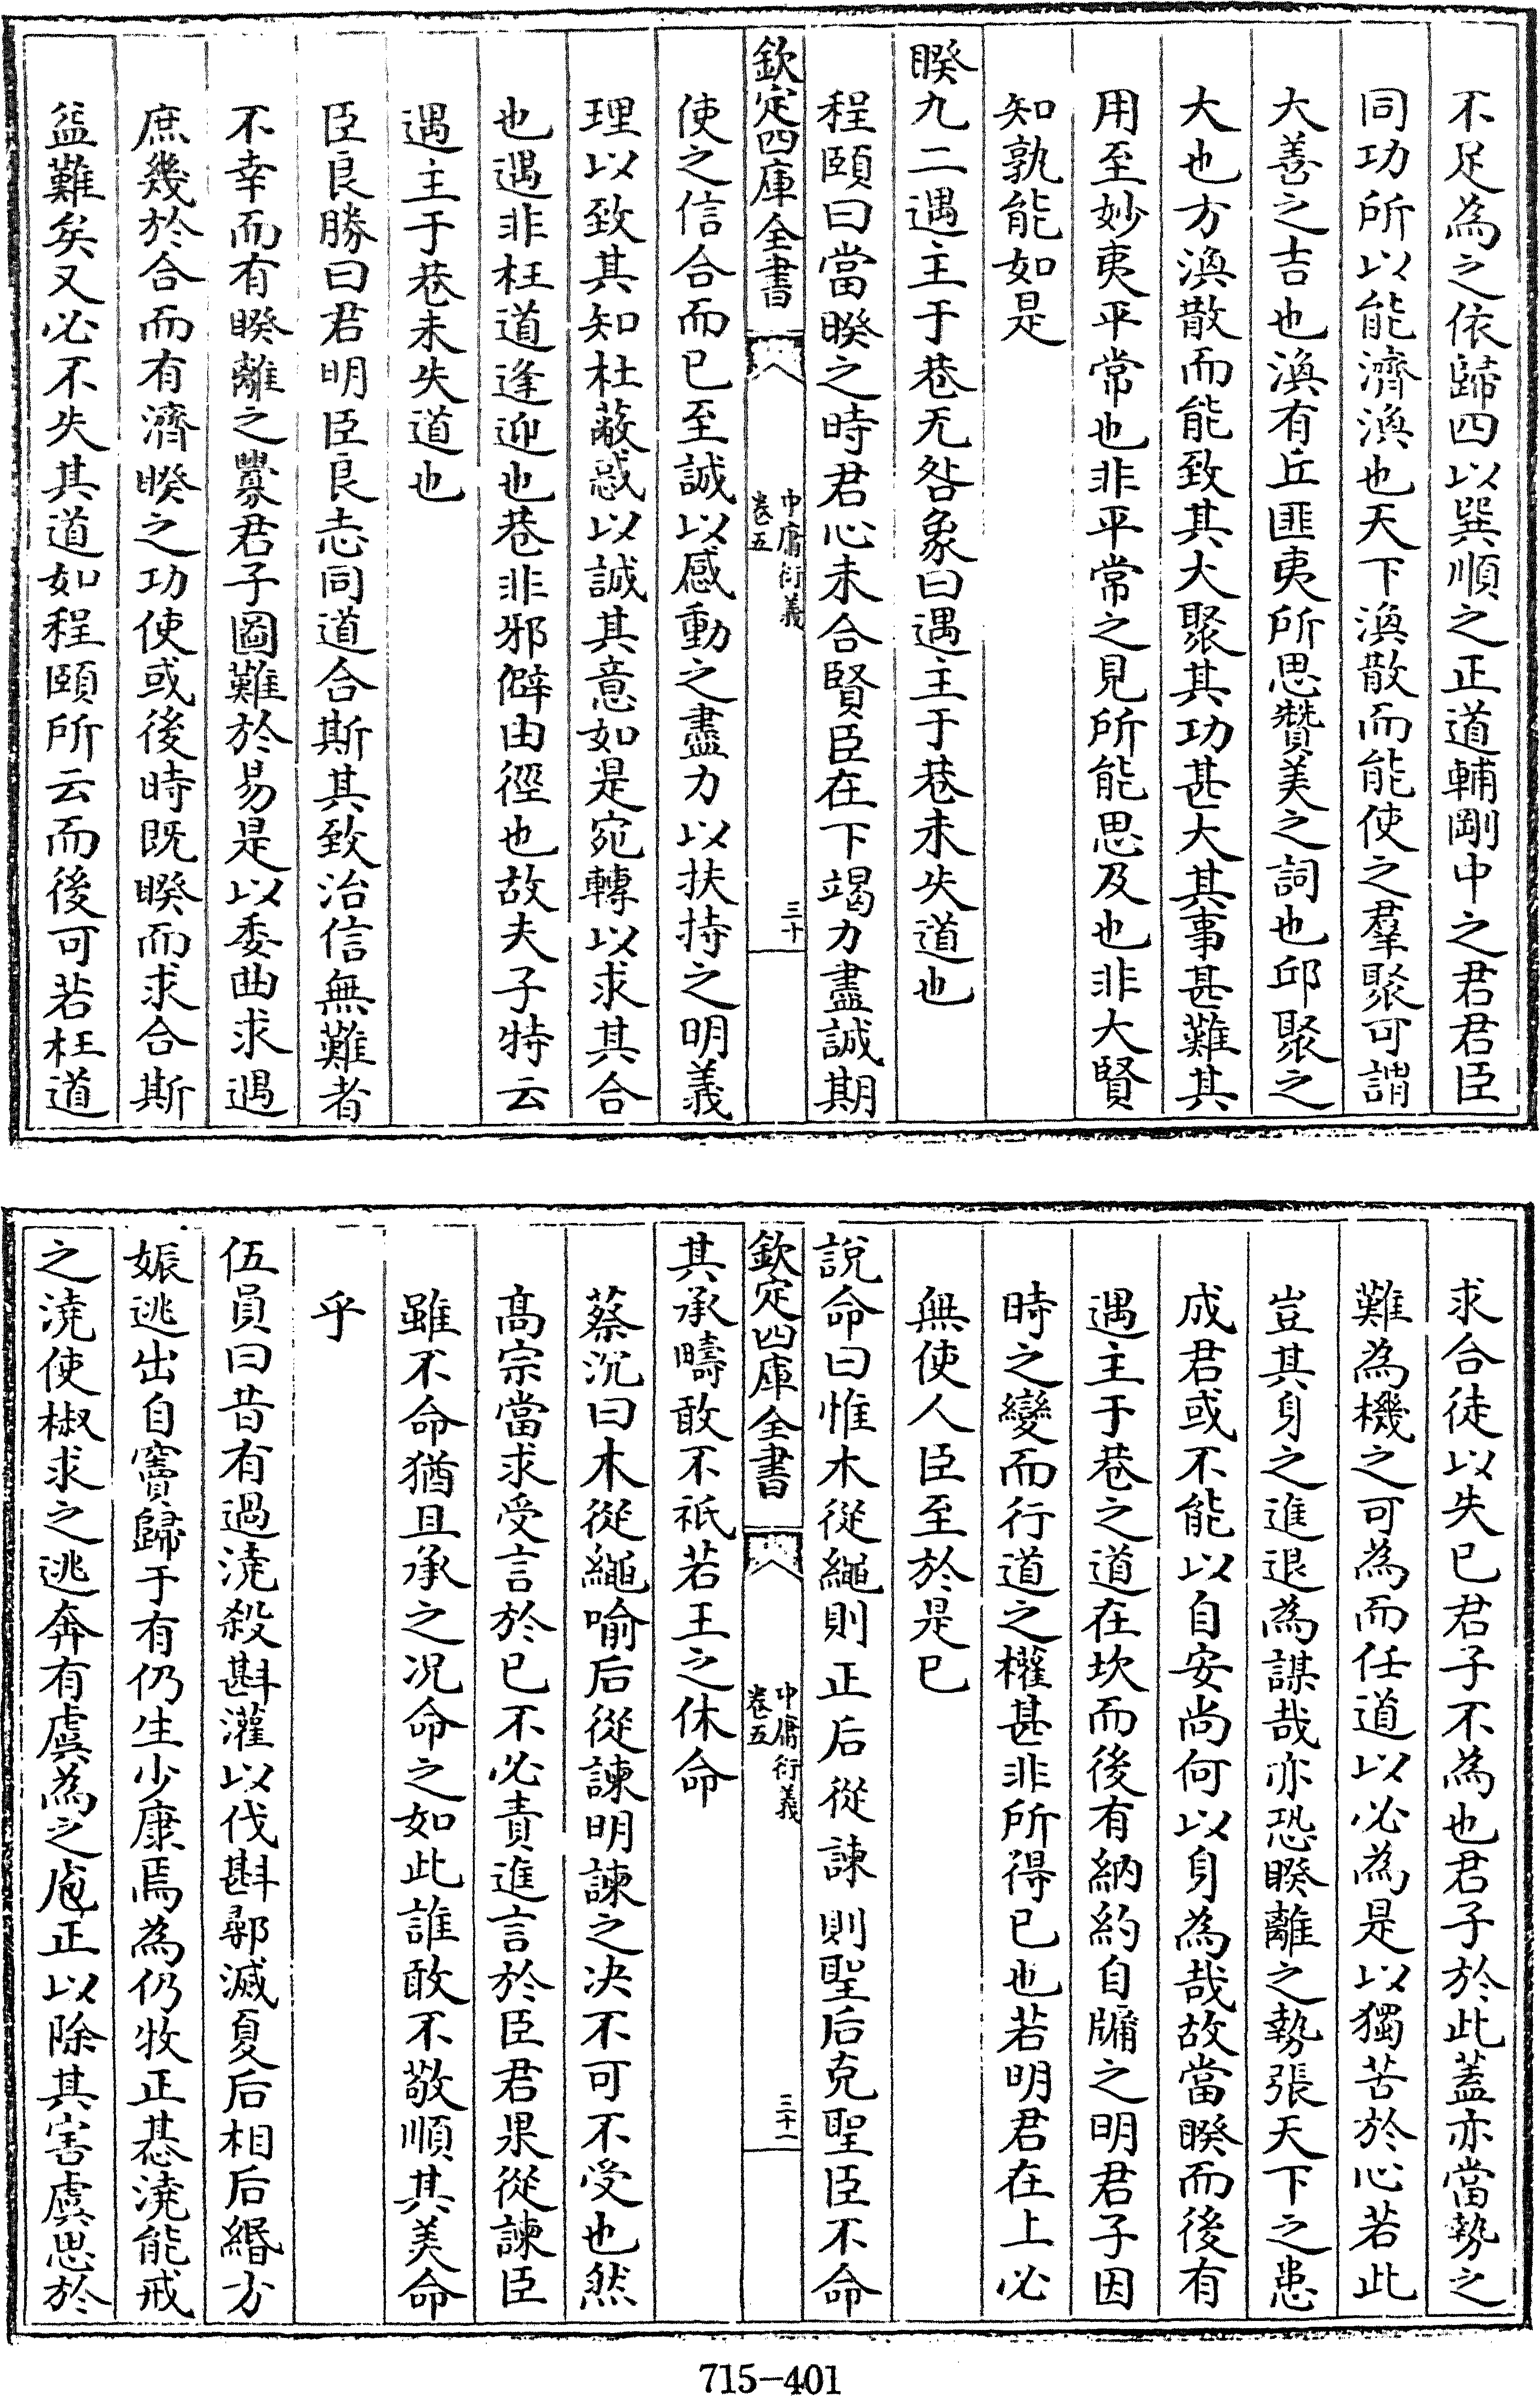 不足為之依歸四以巽順之正道輔剛中之君君臣
同功所以能濟渙也天下渙散而能使之羣聚可謂
大善之吉也渙有丘匪夷所思贊美之詞也邱聚之
大也方渙散而能致其大聚其功甚大其事甚難其
用至妙夷平常也非平常之見所能思及也非大賢
知孰能如是
睽九二遇主于巷无咎象曰遇主于巷未失道也
程頤曰當睽之時君心未合賢臣在下竭力盡誠期
欽定四庫全書
中庸衍義
卷五
三十
使之信合而已至誠以感動之盡力以扶持之明義
理以致其知杜蔽惑以誠其意如是宛轉以求其合
也遇非枉道逢迎也巷非邪僻由徑也故夫子特云
遇主于巷未失道也
臣良勝曰君明臣良志同道合斯其致治信無難者
不幸而有睽離之釁君子圖難於易是以委曲求遇
庶幾於合而有濟睽之功使或後時既睽而求合斯
益難矣又必不失其道如程頤所云而後可若枉道
求合徒以失已君子不為也君子於此蓋亦當勢之
難為機之可為而任道以必為是以獨苦於心若此
豈其身之進退為謀哉亦恐睽離之勢張天下之患
成君或不能以自安尚何以身為哉故當睽而後有
遇主于巷之道在坎而後有納約自牖之明君子因
時之變而行道之權甚非所得已也若明君在上必
無使人臣至於是已
說命曰惟木從繩則正后從諫則聖后克聖臣不命
欽定四庫全書
中庸衍義
卷五
三十一
其承疇敢不祇若王之休命
蔡沉曰木從繩喻后從諫明諫之决不可不受也然
高宗當求受言於已不必責進言於臣君果從諫臣
雖不命猶且承之况命之如此誰敢不敬順其美命
乎
伍員曰昔有過澆殺斟灌以伐斟鄩滅夏后相后緡方
娠逃出自竇歸于有仍生少康焉為仍牧正惎澆能戒
之澆使椒求之逃奔有虞為之庖正以除其害虞思於
715-401